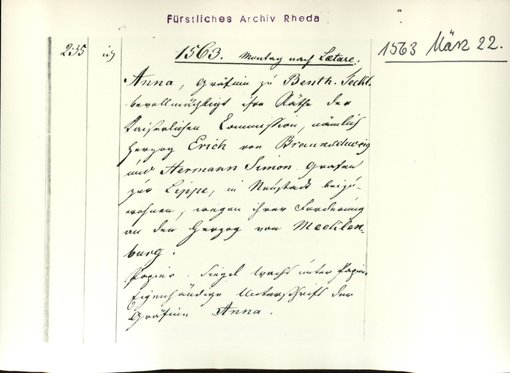 Fürstliches Archiv Rheda
235
1563. Montag nach Laetare.
1563 März 22.
Anna, Gräfin zu Benth. Teckl.
bevollmächtigt ihre Räthe der
Kaiserlichen Commission, nämlich
Herzog Erich von Braunschweig
und Hermann Simon Grafen
zur Lippe, in Neustadt beizu-
wohnen, wegen ihrer Forderung
an den Herzog von Mecklen-
burg.
Papier. Siegel Wachs unter Papier.
Eigenhändige Unterschrift der
Gräfin Anna.